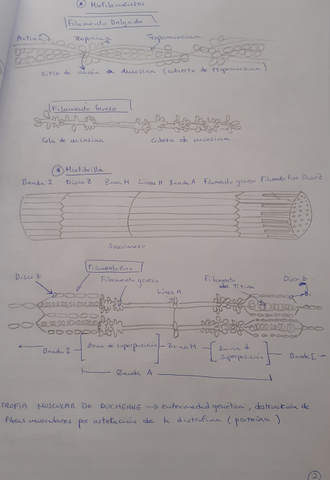 Miofilamentos
Filamento Delgado
Actina Troponina Tropomiosina
Sitio de unión de miosina (cubierto de tropomiosina)
Filamento Grueso
Cola de miosina Cabeza de miosina
Miofibrilla
Banda I Disco Z Zona H Línea M Banda A Filamento grueso Filamento fino Disco Z
Sarcómero
Filamento Fino
Disco Z Filamento grueso Línea M Filamento de Titina Disco Z
Banda I Zona de superposición Zona H Zona de superposición Banda I
Banda A
TROFIA MUSCULAR DE DUCHENNE → enfermedad genética, destrucción de
fibras musculares por de la distrofina (proteína)
2